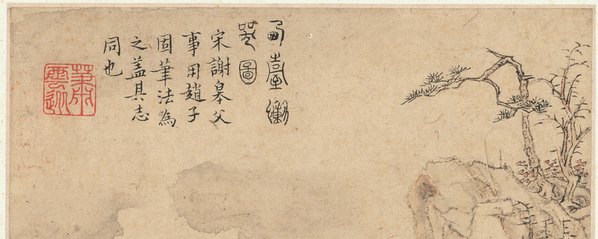 西臺慟
哭圖
宋謝皋父
事用趙子
固筆法為
之蓋其志
同也